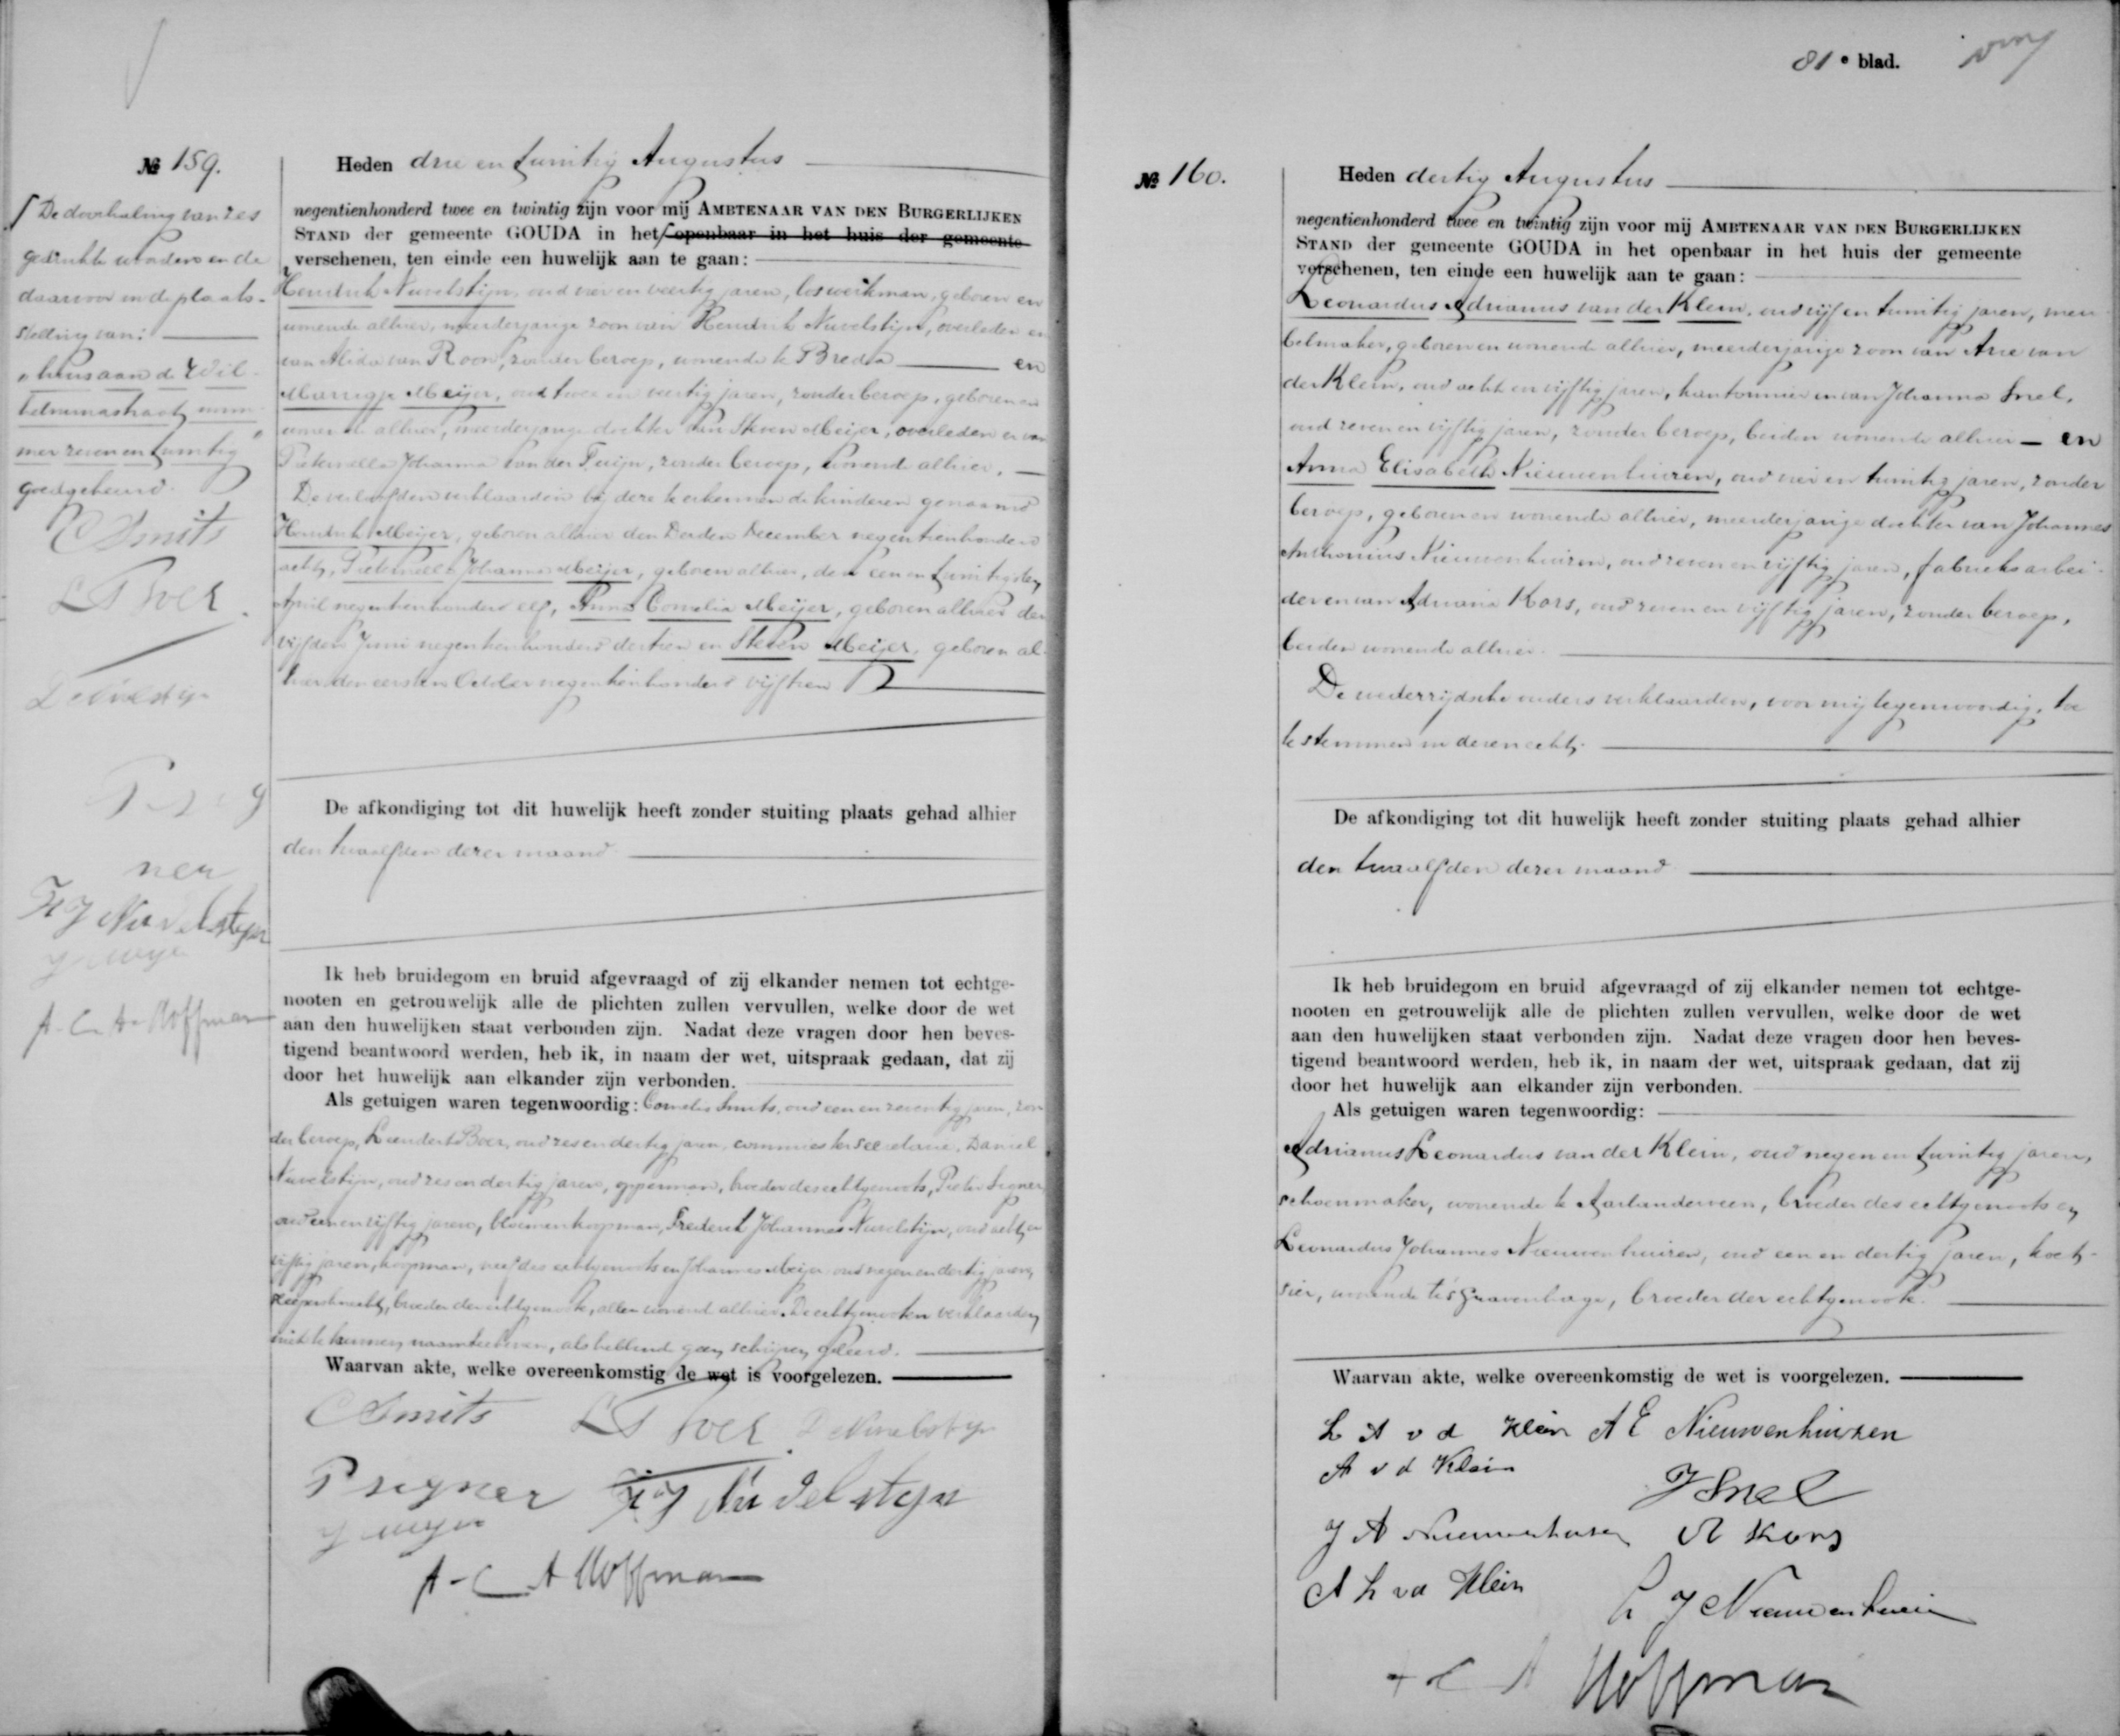 № 159.
De doorhaling van zes
gedrukte woorden en de
daarvoor in de plaats-
stelling van:
"huis aan de Wil-
helminastraat num-
mer zeven en twintig"
goedgekeurd.
C Smits
L Boer
D Nuvelstijn
P
ner
F J Nuvelsteyn
J Meyer
A. C. A. Hoffman
Heden drie en twintig Augustus
negentienhonderd twee en twintig zijn voor mij AMBTENAAR VAN DEN BURGERLIJKEN
STAND der gemeente GOUDA in het openbaar in het huis der gemeente
verschenen, ten einde een huwelijk aan te gaan:
Hendrik Nuvelstijn, oud vier en veertig jaren, los werkman, geboren en
wonende alhier, meerderjarige zoon van Hendrik Nuvelstijn, overleden en
van Alida van Roon, zonder beroep, wonende te Breda en
Marrigje Meijer, oud twee en veertig jaren, zonder beroep, geboren en
wonende alhier, meerderjarige dochter van Steven Meijer, overleden en van
Pieternella Johanna van der Tuijn, zonder beroep, wonende alhier.
De verloofden verklaarden bij deze te erkennen de kinderen genaamd
Hendrik Meijer, geboren alhier den Derden December negentienhonderd
acht, Pieternella Johanna Meijer, geboren alhier, den een en twintigsten
April negentienhonderd elf, Anna Cornelia Meijer, geboren alhier den
vijfden Juni negentienhonderd dertien en Steven Meijer, geboren al-
hier den eersten October negentienhonderd vijftien
De afkondiging tot dit huwelijk heeft zonder stuiting plaats gehad alhier
den twaalfden dezer maand
Ik heb bruidegom en bruid afgevraagd of zij elkander nemen tot echtge-
nooten en getrouwelijk alle de plichten zullen vervullen, welke door de wet
aan den huwelijken staat verbonden zijn. Nadat deze vragen door hen beves-
tigend beantwoord werden, heb ik, in naam der wet, uitspraak gedaan, dat zij
door het huwelijk aan elkander zijn verbonden.
Als getuigen waren tegenwoordig: Cornelis Smits, oud een en zeventig jaren, zon-
der beroep, Leendert Boer, oud zes en dertig jaren, commies ter secretarie, Daniel
Nuvelstijn, oud zes en dertig jaren, opperman, broeder des echtgenoots, Pieter Signer
oud een en vijftig jaren, bloemenkoopman, Frederik Johannes Nuvelstijn, oud acht en
vijftig jaren, koopman, neef des echtgenoots en Johannes Meijer oud negen en dertig jaren,
knecht, broeder der echtgenoote, allen wonend alhier. De echtgenooten verklaarden
niet te kunnen naamteekenen, als hebbende geen schrijven geleerd.
Waarvan akte, welke overeenkomstig de wet is voorgelezen.
C Smits L Boer D Nuvelstijn
P Signer F J Nuvelsteyn
J Meyer
A. C. A Hoffman
81e blad.
№ 160.
Heden dertig Augustus
negentienhonderd twee en twintig zijn voor mij AMBTENAAR VAN DEN BURGERLIJKEN
STAND der gemeente GOUDA in het openbaar in het huis der gemeente
verschenen, ten einde een huwelijk aan te gaan:
Leonardus Adrianus van der Klein, oud vijf en twintig jaren, meu-
belmaker, geboren en wonende alhier, meerderjarige zoon van Arie van
der Klein, oud acht en vijftig jaren, kantonnier en van Johanna Snel,
oud zeven en vijftig jaren, zonder beroep, beiden wonende alhier en
Anna Elisabeth Nieuwenhuizen, oud vier en twintig jaren, zonder
beroep, geboren en wonende alhier, meerderjarige dochter van Johannes
Anthonius Nieuwenhuizen, oud zeven en vijftig jaren, fabrieksarbei-
der en van Adriana Kors, oud zeven en vijftig jaren, zonder beroep,
beiden wonende alhier.
De wederzijdsche ouders verklaarden, voor mij tegenwoordig, toe
te stemmen in dezen echt.
De afkondiging tot dit huwelijk heeft zonder stuiting plaats gehad alhier
den twaalfden dezer maand
Ik heb bruidegom en bruid afgevraagd of zij elkander nemen tot echtge-
nooten en getrouwelijk alle de plichten zullen vervullen, welke door de wet
aan den huwelijken staat verbonden zijn. Nadat deze vragen door hen beves-
tigend beantwoord werden, heb ik, in naam der wet, uitspraak gedaan, dat zij
door het huwelijk aan elkander zijn verbonden.
Als getuigen waren tegenwoordig:
Adrianus Leonardus van der Klein, oud negen en twintig jaren,
schoenmaker, wonende te Aarlanderveen, broeder des echtgenoots en
Leonardus Johannes Nieuwenhuizen, oud een en dertig jaren, koet-
sier, wonende te 's Gravenhage, broeder der echtgenoote.
Waarvan akte, welke overeenkomstig de wet is voorgelezen.
L A v d Klein A E Nieuwenhuizen
A v d Klein
J Snel
J A Nieuwenhuizen A Kors
A L v d Klein
L J Nieuwenhuizen
A C A Hoffman